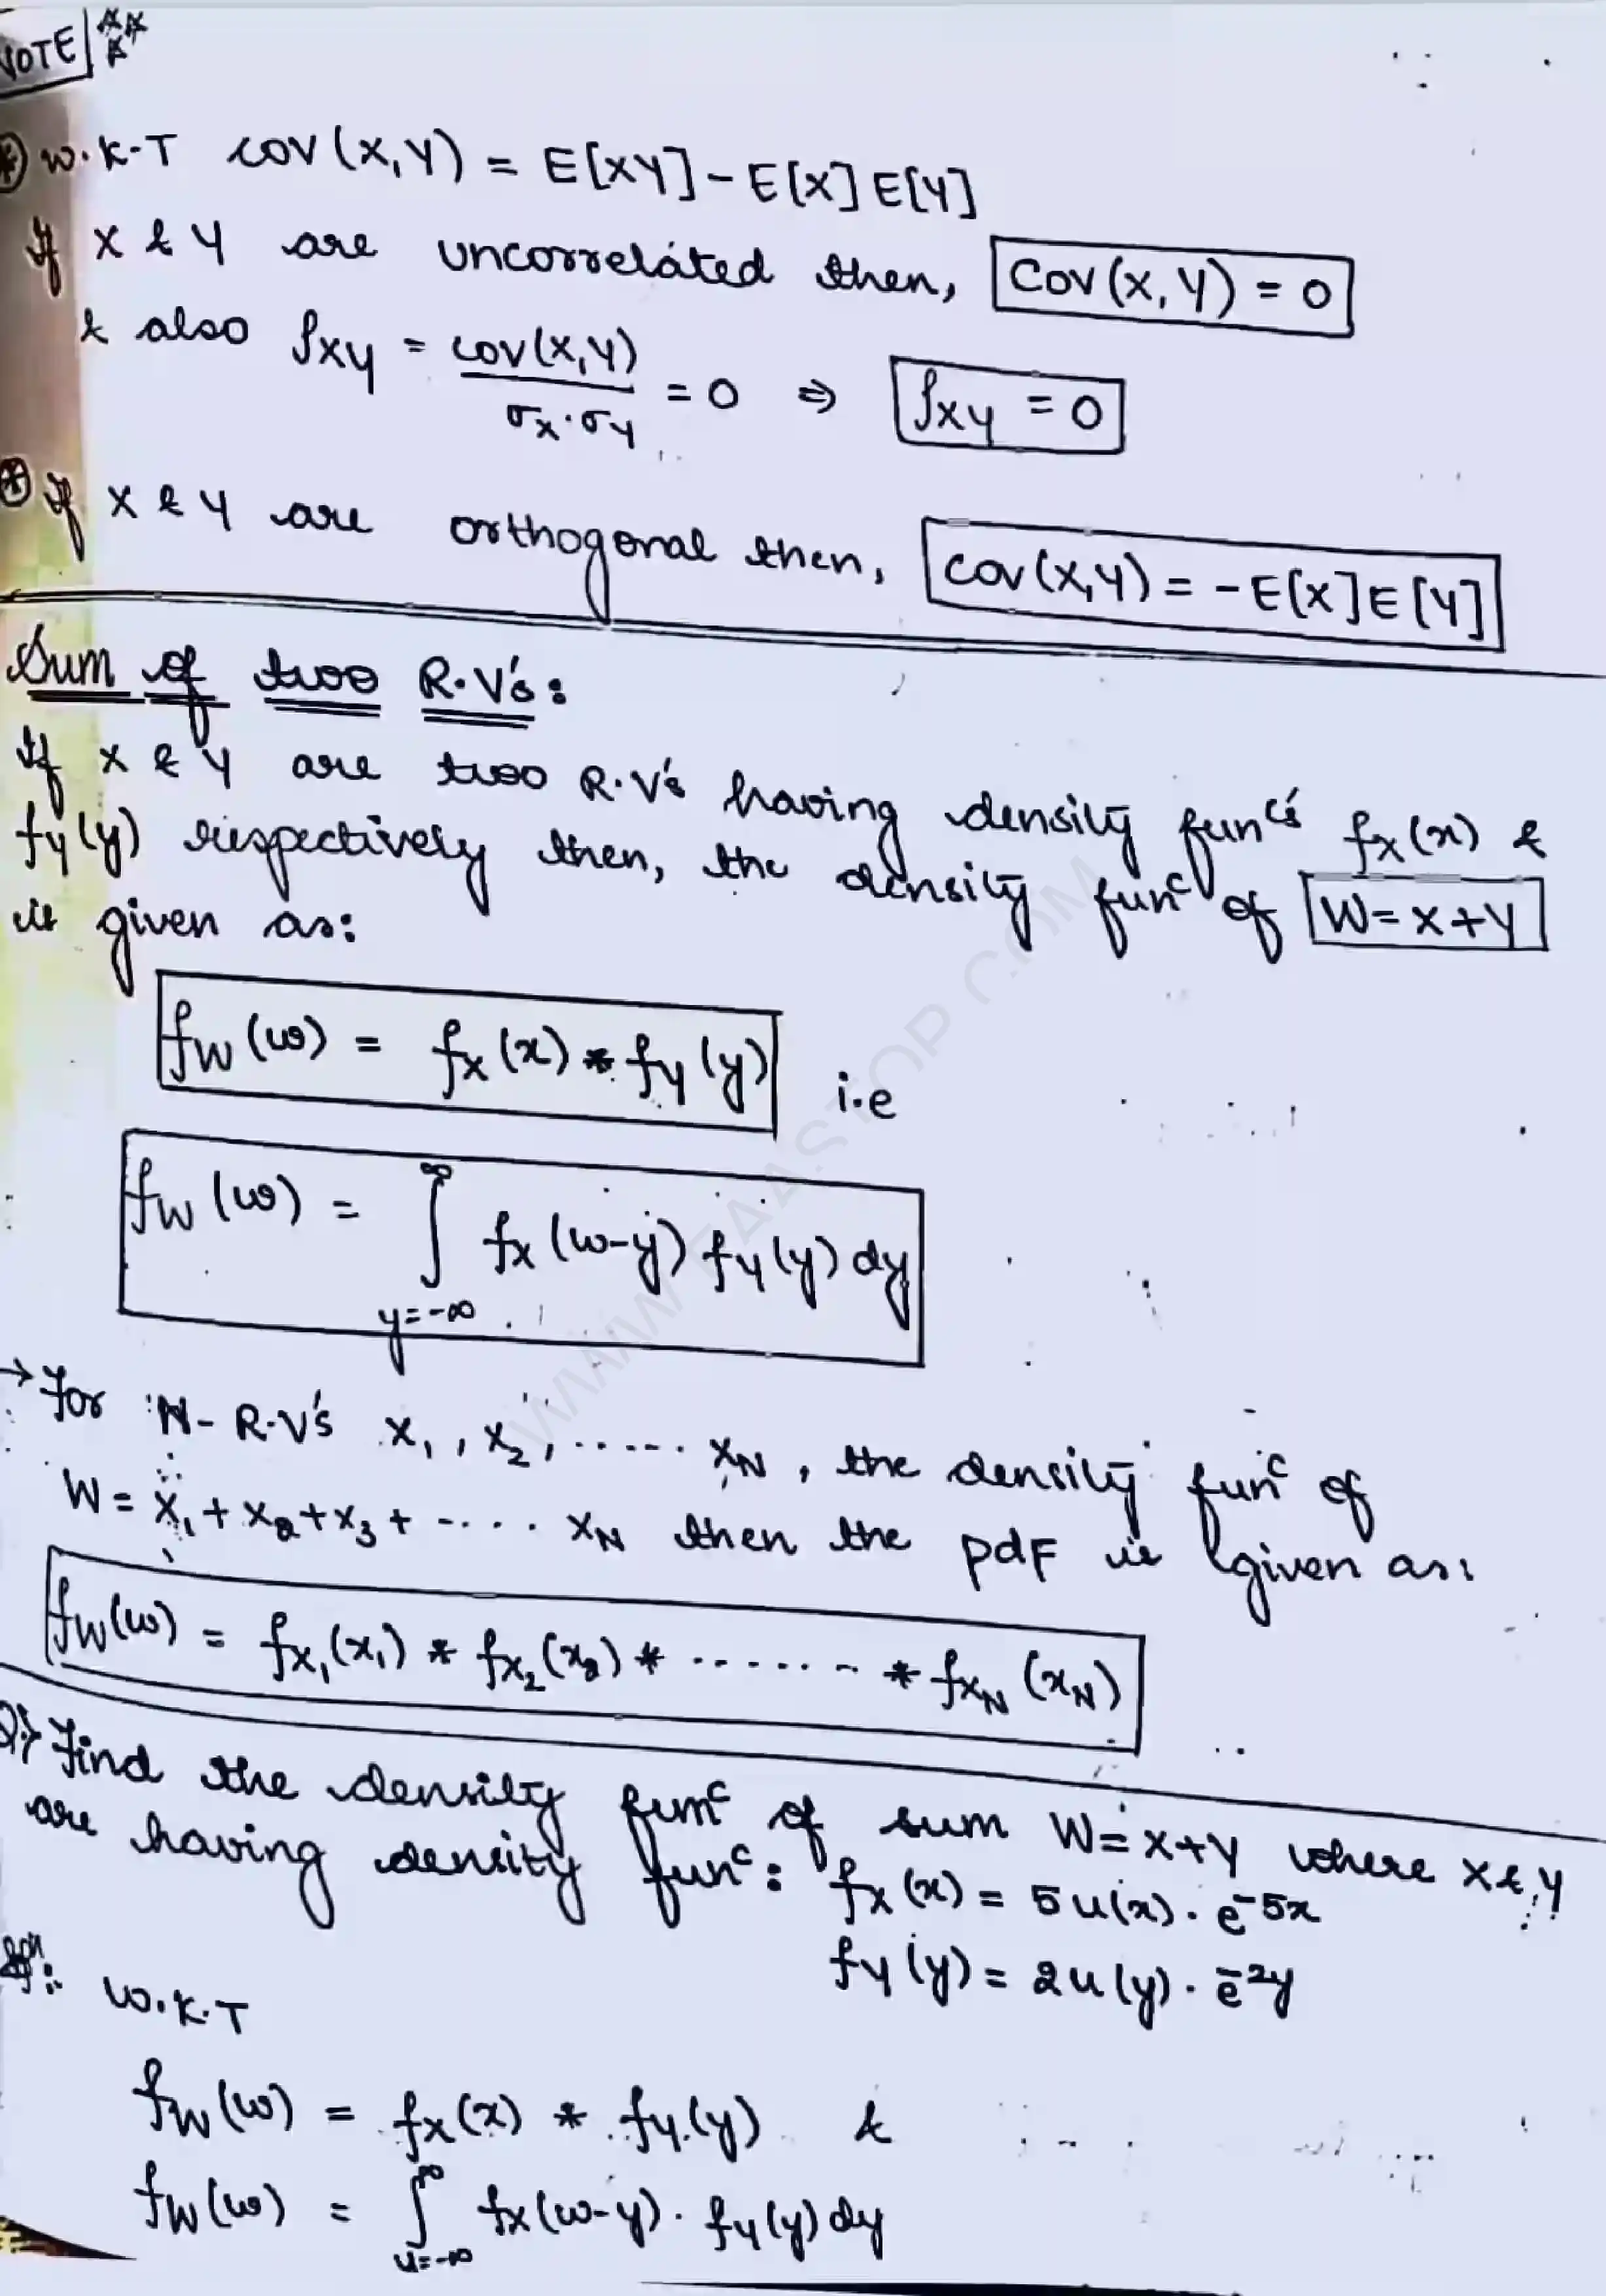 NOTE
* W.K.T cov(X,Y) = E[XY] - E[X] E[Y]
If X & Y are uncorrelated then, Cov(X,Y) = 0
& also ρXY = cov(X,Y) / σX·σY = 0 ⇒ ρXY = 0
* If X & Y are orthogonal then, cov(X,Y) = -E[X]E[Y]
Sum of two R.V's:
If X & Y are two R.V's having density func's fX(x) &
fY(y) respectively then, the density func of W = X+Y
is given as:
fW(w) = fX(x) * fY(y) i.e
fW(w) = ∫_{y=-∞}^{∞} fX(w-y) fY(y) dy
→ For N- R.V's X1, X2, ...... XN, the density func of
W = X1 + X2 + X3 + ----- XN then the pdf is given as:
fW(w) = fX1(x1) * fX2(x2) * ------- * fXN(xN)
Q:} Find the density func of sum W = X+Y where X & Y
are having density func: fX(x) = 5u(x)·e^-5x
fY(y) = 2u(y)·e^-2y
Sol: W.K.T
fW(w) = fX(x) * fY(y) &
fW(w) = ∫_{y=-∞}^{∞} fX(w-y)·fY(y) dy